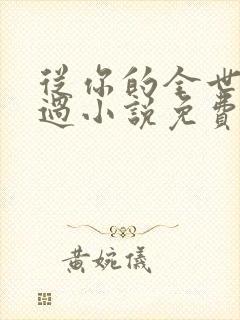 從你的全世
過小說免費
黃婉儀